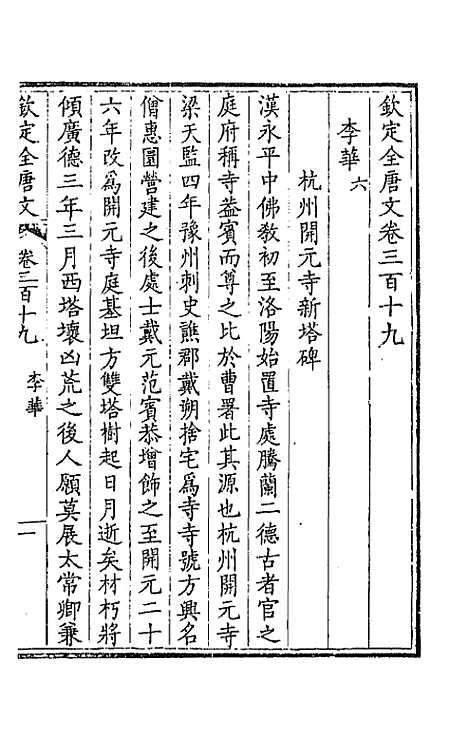 欽定全唐文卷三百十九
李華 六
杭州開元寺新塔碑
漢永平中佛教初至洛陽始置寺處騰蘭二德古者官之
庭府稱寺葢賓而尊之比於曹署此其源也杭州開元寺
梁天監四年豫州刺史譙郡戴朔捨宅爲寺寺號方興名
僧惠圓營建之後處士戴元范賓恭增飾之至開元二十
六年改爲開元寺庭基坦方雙塔樹起日月逝矣材朽將
傾廣德三年三月西塔壞凶荒之後人願莫展太常卿兼
欽定全唐文 卷三百十九 李華 一